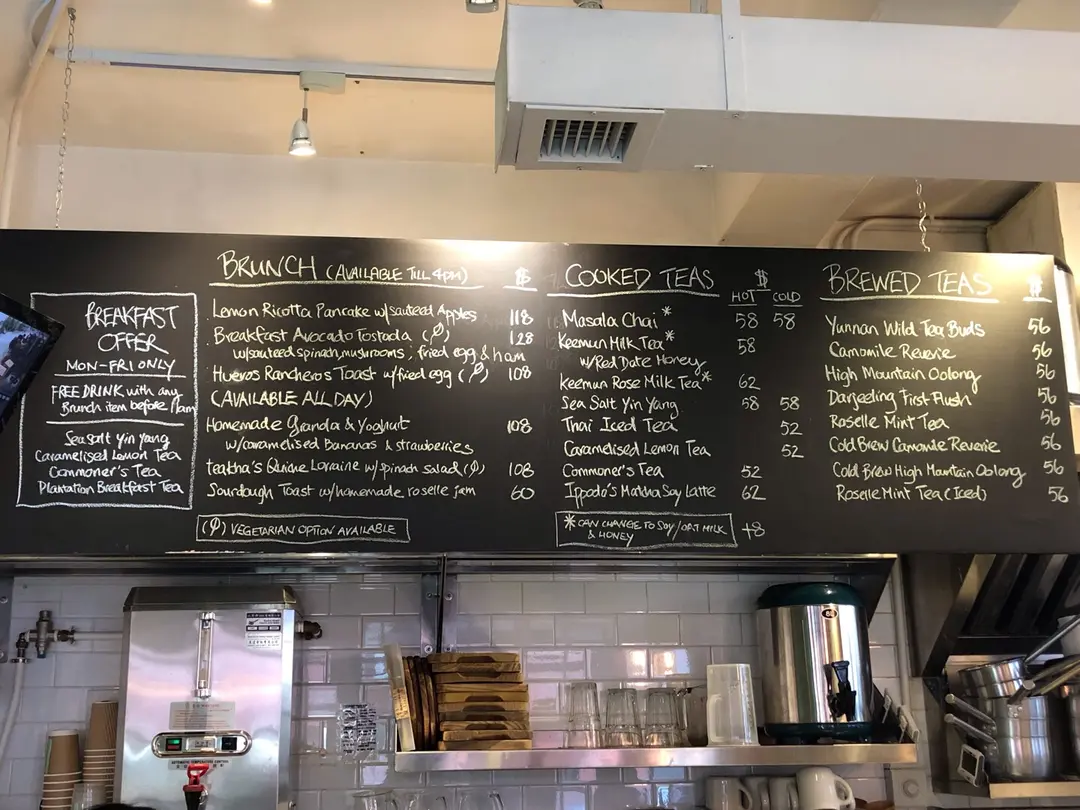 BREAKFAST
OFFER
MON-FRI ONLY
FREE DRINK with any
Brunch item before 11am
Sea salt Yin Yang
Caramelised Lemon Tea
Commoner's Tea
Plantation Breakfast Tea
BRUNCH (AVAILABLE TILL 4PM) $
Lemon Ricotta Pancake w/sauteed Apples 118
Breakfast Avocado Tostada (∅) 128
w/sauteed spinach, mushrooms, fried egg & ham
Huevos Rancheros Toast w/fried egg (∅) 108
(AVAILABLE ALL DAY)
Homemade Granola & Yoghurt 108
w/caramelised Bananas & strawberries
teakha's Quiche Lorraine w/spinach salad (∅) 108
Sourdough Toast w/homemade roselle jam 60
(∅) VEGETARIAN OPTION AVAILABLE
COOKED TEAS $
HOT COLD
Masala Chai * 58 58
Keemun Milk Tea * 58
w/Red Date Honey
Keemun Rose Milk Tea * 62
Sea Salt Yin Yang 58 58
Thai Iced Tea 52
Caramelised Lemon Tea 52
Commoner's Tea 52
Ippodo's Matcha Soy Latte 62
* CAN CHANGE TO SOY/OAT MILK +8
& HONEY
BREWED TEAS $
Yunnan Wild Tea Buds 56
Camomile Reverie 56
High Mountain Oolong 56
Darjeeling First Flush 56
Roselle Mint Tea 56
Cold Brew Camomile Reverie 56
Cold Brew High Mountain Oolong 56
Roselle Mint Tea (Iced) 56